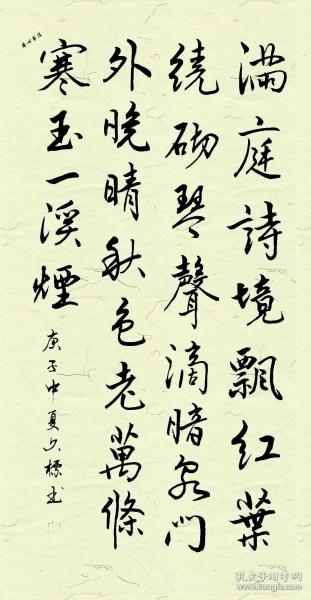 满庭詩境飄红葉
绕砌琴聲滴暗泉門
外晚晴秋色老萬條
寒玉一溪煙
庚子中夏少標书
孔夫子旧书网